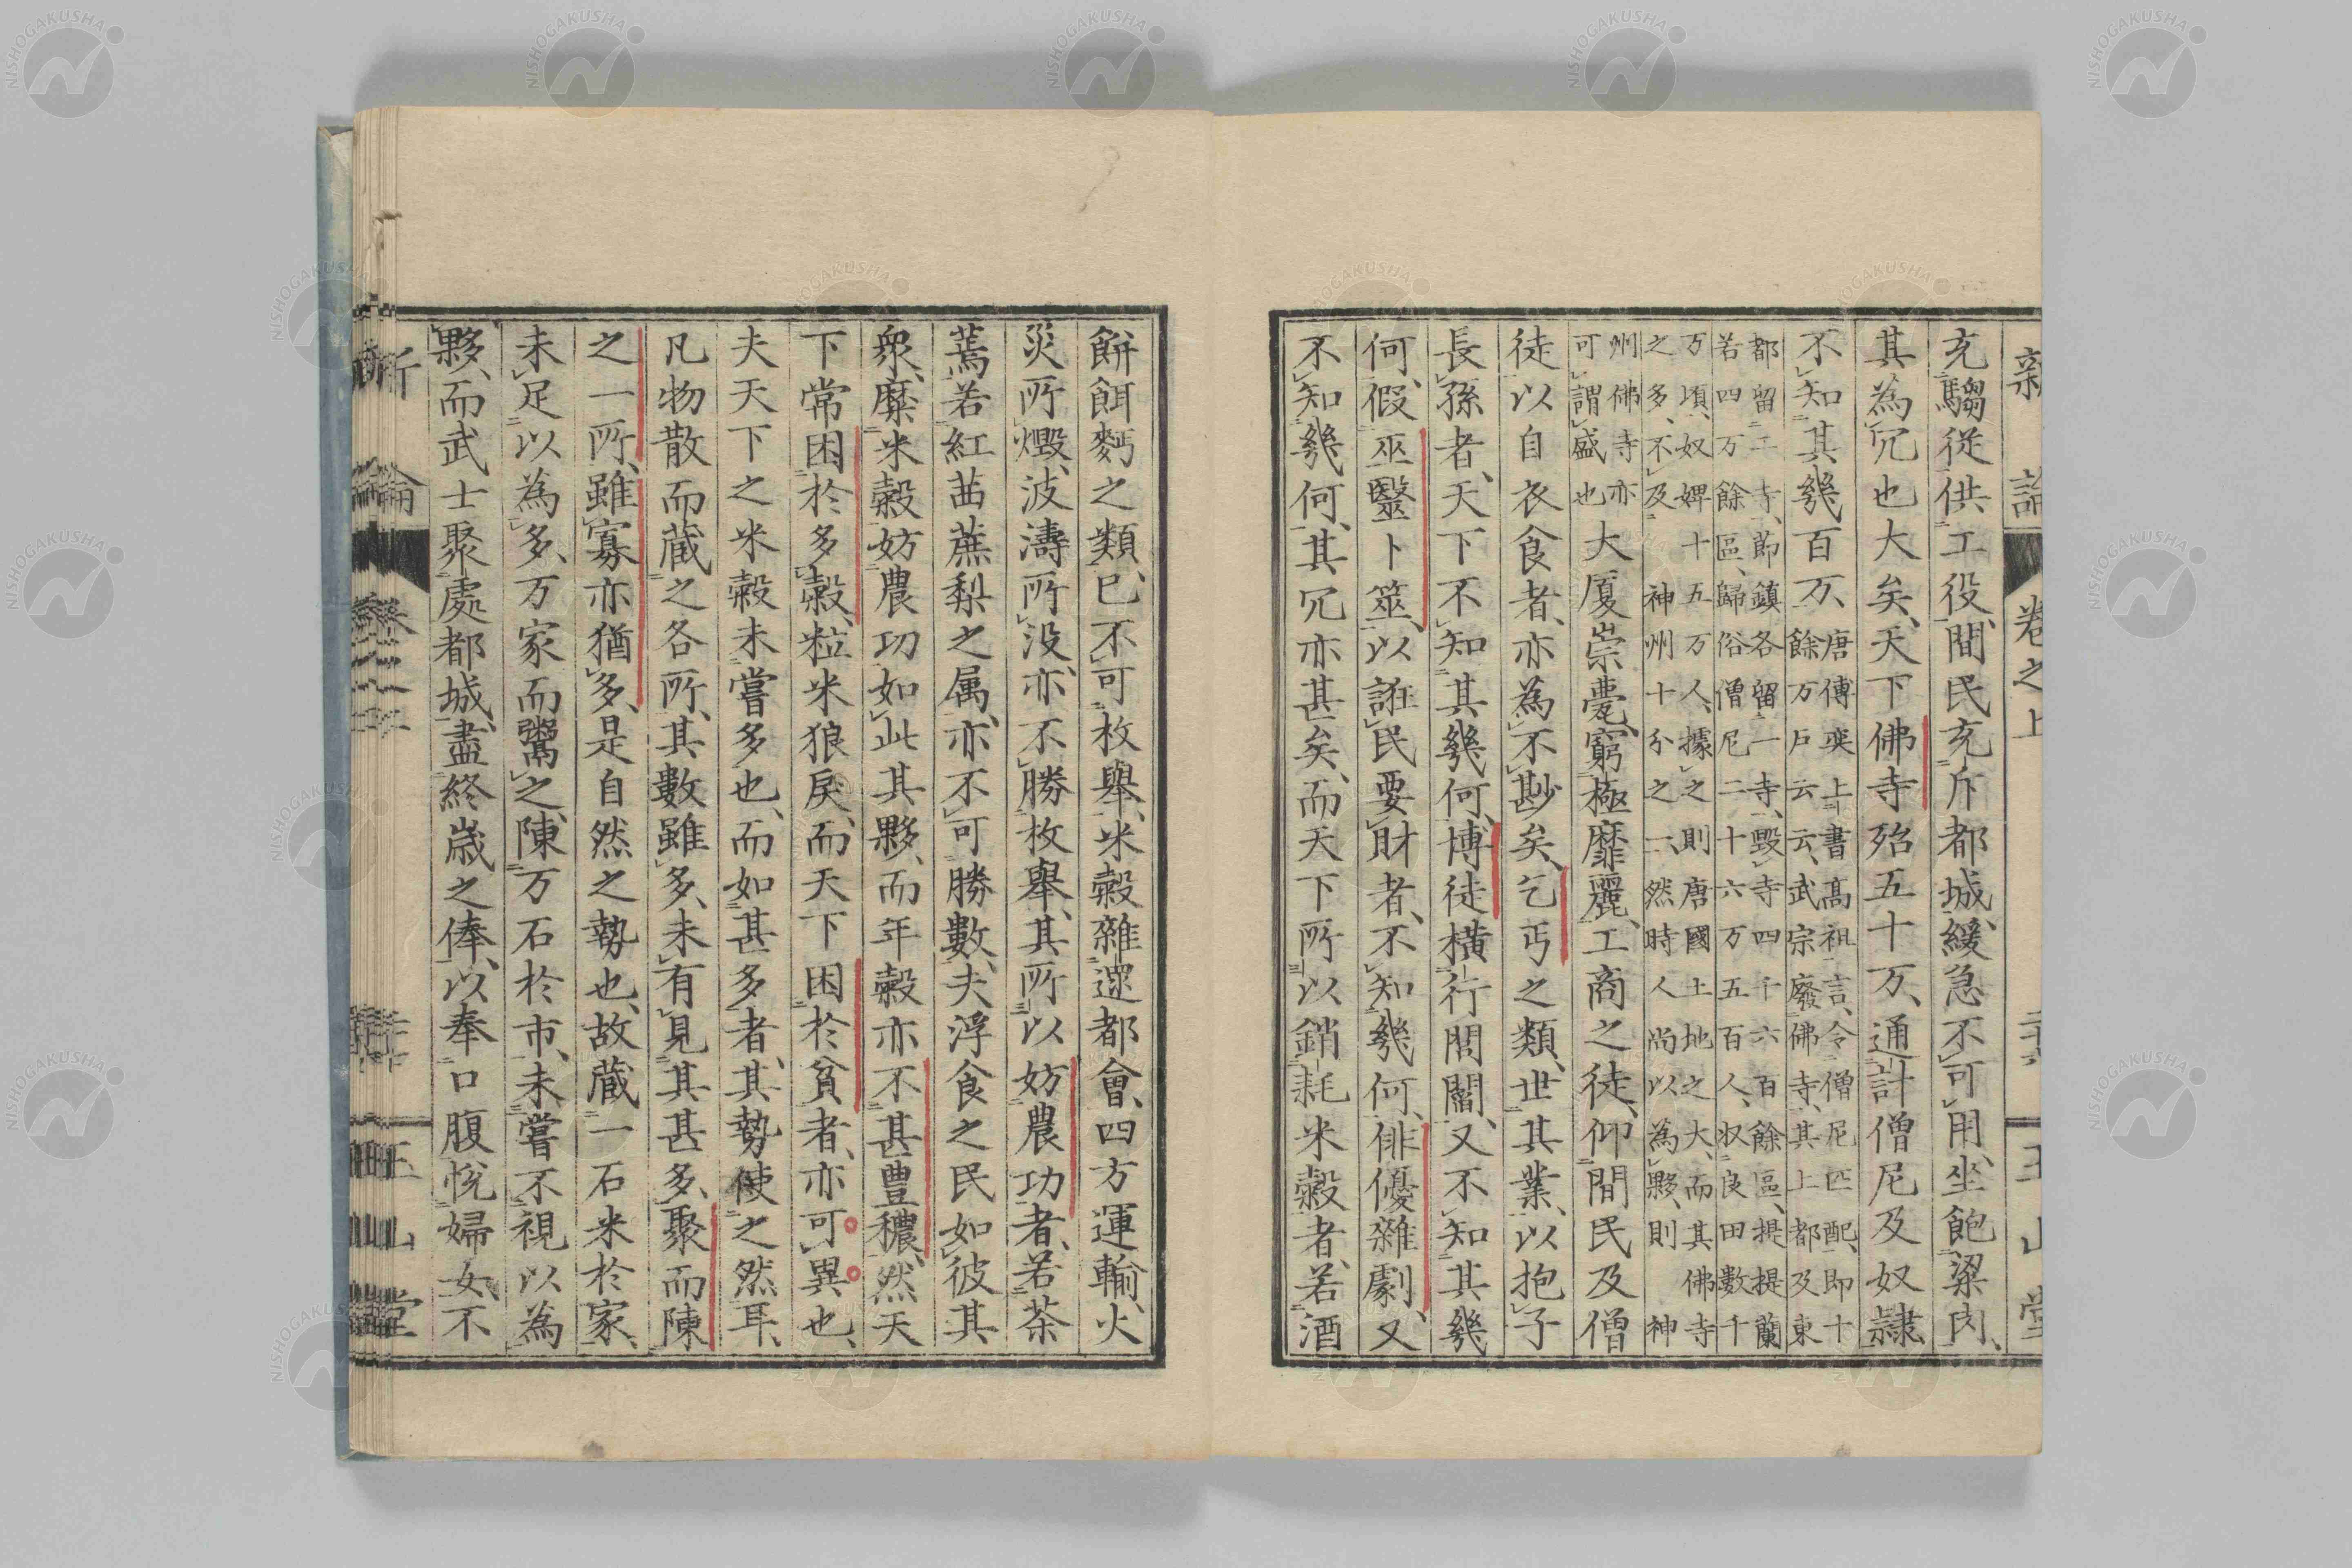 新論 卷之上 玉山堂
充騶從、供工役、間民充斥都城、緩急不可用、坐飽粱肉、
其為冗也大矣、天下佛寺殆五十万、通計僧尼及奴隷
不知其幾百万、唐傅奕上書高祖言、令僧尼匹配、即十
餘万戸云云、武宗廢佛寺、其上都及東
都留二寺、節鎮各留一寺、毀寺四千六百餘區、提提蘭
若四万餘區、歸俗僧尼二十六万五百人、收良田數千
万頃、奴婢十五万人、據之則唐國土地之大、而其佛寺
之多、不及 神州十分之一、然時人尚以為夥、則 神
州佛寺亦
可謂盛也 大厦崇甍、窮極靡麗、工商之徒、仰間民及僧
徒以自衣食者、亦為不尠矣、乞丐之類、世其業、以抱子
長孫者、天下不知其幾何、博徒橫行閭閻、又不知其幾
何、假巫醫卜筮、以誑民要財者、不知幾何、俳優雜劇、又
不知幾何、其冗亦甚矣、而天下所以銷耗米穀者、若酒
餅餌麪之類、已不可枚舉、米穀雜遝都會、四方運輸、火
災所燬、波濤所没、亦不勝枚舉、其所以妨農功者、若茶
蔫若紅茜蔗梨之属、亦不可勝數、夫浮食之民如彼其
衆、糜米穀妨農功如此其夥、而年穀亦不甚豊穰、然天
下常困於多穀、粒米狼戻、而天下困於貧者、亦可異也、
夫天下之米穀未嘗多也、而如甚多者、其勢使之然耳、
凡物散而蔵之各所、其數雖多、未有見其甚多、聚而陳
之一所、雖寡亦猶多、是自然之勢也、故蔵一石米於家、
未足以為多、万家而鬻之、陳万石於市、未嘗不視以為
夥、而武士聚處都城、盡終歳之俸、以奉口腹悅婦女、不
新論 玉山堂